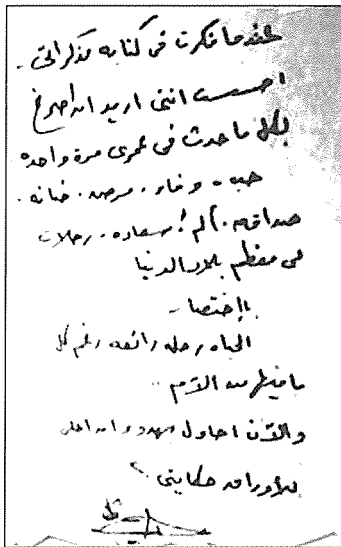 عندما فكرت في كتابة مذكراتي -
احسست انني اريد ان اصرخ
بكل ما حدث في عمري مرة واحده
حب. وفاء. مرض. خيانه.
صداقه. ألم! سعاده. رحلات
في معظم بلاد الدنيا
بإختصار -
الحياه رحله رائعه رغم كل
ما فيها من الآم ..
والآن احاول بهدوء ان
للاوراق حكايتي